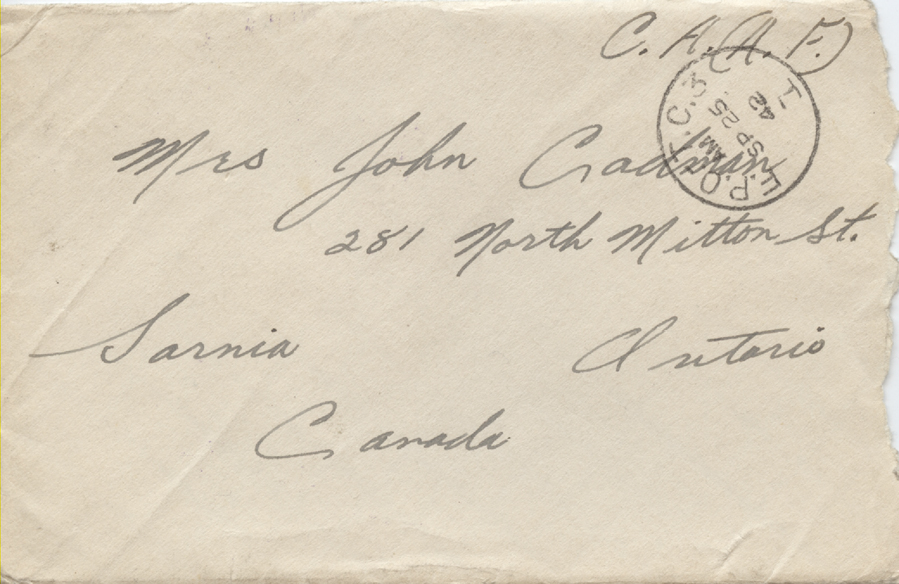 C. A. (A. F.)
F.P.O. T.C.3 T
AM
SP 25
42
Mrs John Cadman
281 North Mitton St.
Sarnia Ontario
Canada